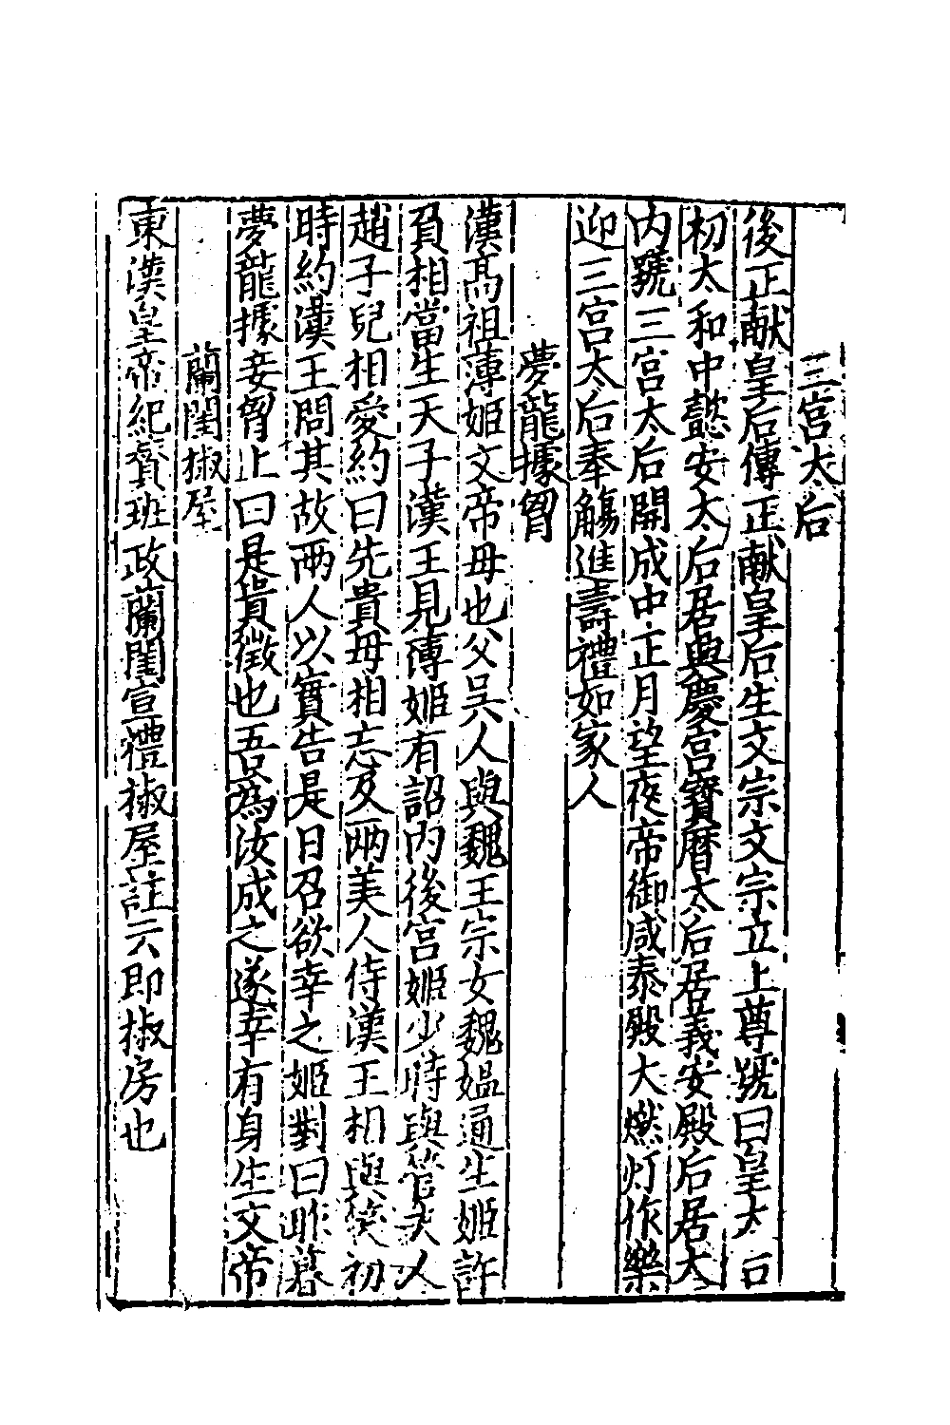 三宮太后
後正献皇后傳正献皇后生文宗文宗立上尊號曰皇太后
初太和中懿安太后居興慶宮寶曆太后居義安殿后居大
内號三宮太后開成中正月望夜帝御咸泰殿大燃灯作樂
迎三宮太后奉觴進壽禮如家人
夢龍據胷
漢高祖薄姬文帝母也父吳人與魏王宗女魏媼通生姬許
負相當生天子漢王見薄姬有詔内後宮姬少時與管夫人
趙子兒相愛約曰先貴毋相忘及兩美人侍漢王相與笑初
時約漢王問其故兩人以實告是日召欲幸之姬對曰昨暮
夢龍據妾胷上曰是貴徵也吾為汝成之遂幸有身生文帝
蘭閨椒屋
東漢皇帝紀賛班政蘭閨宣禮椒屋註云即椒房也